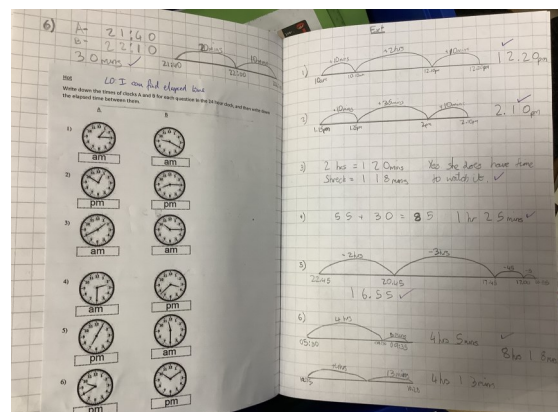 6) A- 21:40
B- 22:10
30 mins ✓
20mins
21:40
22:00
LO I can find elapsed time
Write down the times of clocks A and B for each question in the 24 hour clock, and then write down
the elapsed time between them.
A B
1)
am am
2)
pm pm
3)
am am
4)
am pm
5)
pm am
6)
pm pm
Ext
1) +10mins +2hrs +20mins ✓
12.20pm
2) +10mins +10mins ✓
1.50pm 2pm 2.10pm
2.10pm
3) 2 hrs = 120mins Yes she does have time
Shreck = 118mins to watch it. ✓
4) 55 + 30 = 85 1 hr 25 mins ✓
5) -2hrs -3hrs -45
22:45 20:45 17:45
16.55 ✓
6) 4 hrs
4 hrs 5 mins ✓
8 hrs 18 mins
4 hrs 13 mins